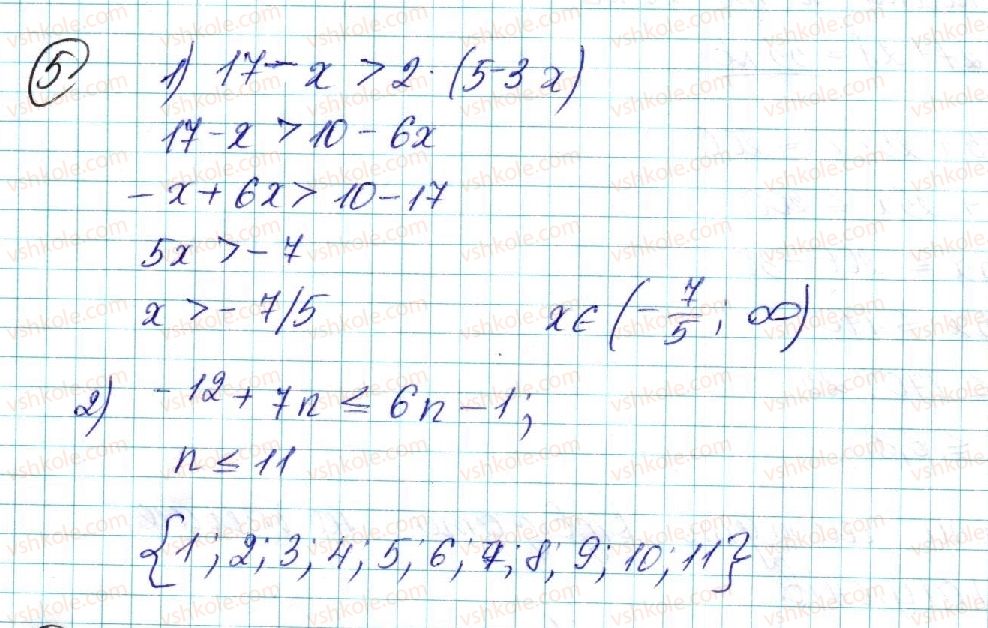 5
1) 17 - x > 2 · (5-3x)
17 - x > 10 - 6x
- x + 6x > 10 - 17
5x > - 7
x > - 7/5 x ∈ (- 7/5 ; ∞)
2) -12 + 7n ≤ 6n - 1;
n ≤ 11
{1; 2; 3; 4; 5; 6; 7; 8; 9; 10; 11}
vshkole.com